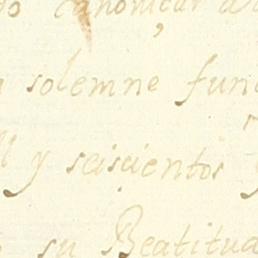 canonizar
solemne fun
y seiscientos
su Beatitud